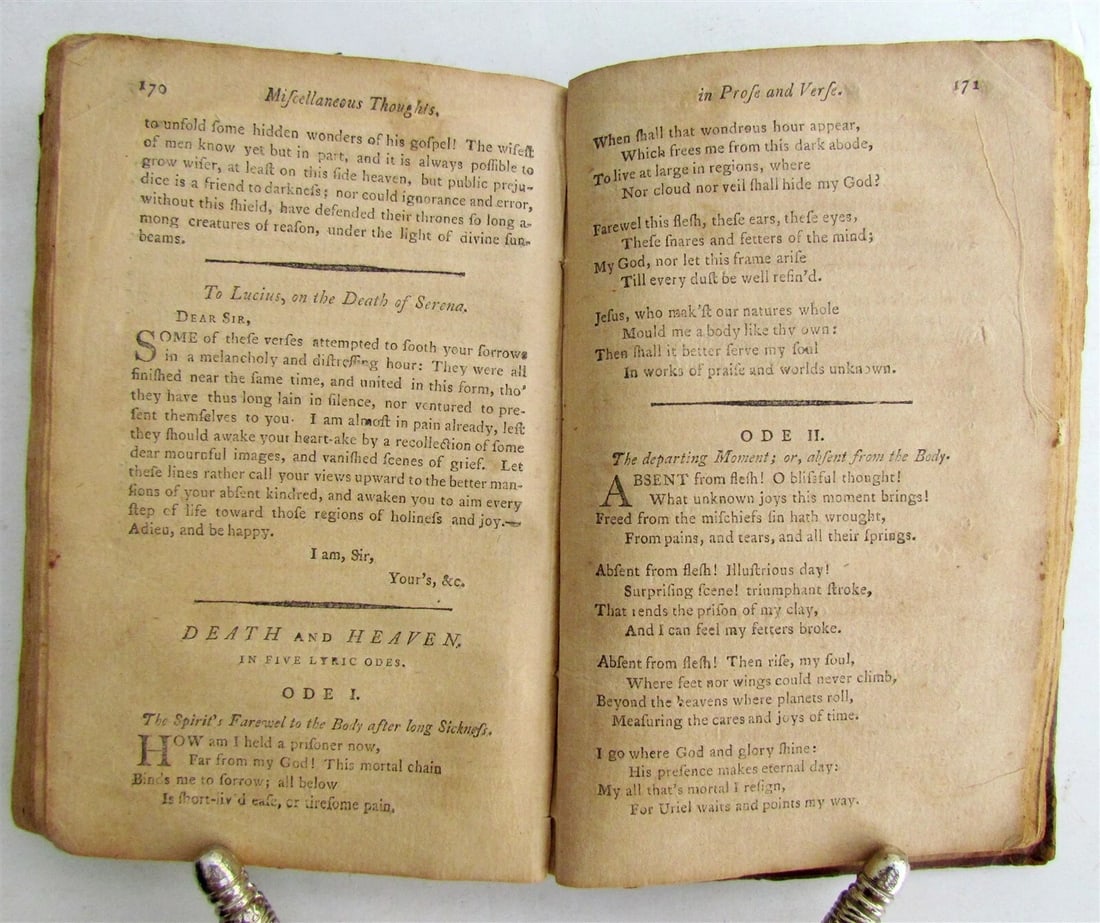 170
Miſcellaneous Thoughts,
to unfold ſome hidden wonders of his goſpel! The wiſeſt
of men know yet but in part, and it is always poſſible to
grow wiſer, at leaſt on this ſide heaven, but public preju-
dice is a friend to darkneſs; nor could ignorance and error,
without this ſhield, have defended their thrones ſo long a-
mong creatures of reaſon, under the light of divine ſun-
beams.
To Lucius, on the Death of Serena.
DEAR SIR,
SOME of theſe verſes attempted to ſooth your ſorrows
in a melancholy and diſtreſſing hour: They were all
finiſhed near the ſame time, and united in this form, tho'
they have thus long lain in ſilence, nor ventured to pre-
ſent themſelves to you. I am almoſt in pain already, leſt
they ſhould awake your heart-ake by a recollection of ſome
dear mournful images, and vaniſhed ſcenes of grief. Let
theſe lines rather call your views upward to the better man-
ſions of your abſent kindred, and awaken you to aim every
ſtep of life toward thoſe regions of holineſs and joy.—
Adieu, and be happy.
I am, Sir,
Your's, &c.
DEATH AND HEAVEN.
IN FIVE LYRIC ODES.
ODE I.
The Spirit's Farewel to the Body after long Sickneſs.
HOW am I held a priſoner now,
Far from my God! This mortal chain
Binds me to ſorrow; all below
Is ſhort-liv'd eaſe, or tireſome pain.
in Proſe and Verſe.
171
When ſhall that wondrous hour appear,
Which frees me from this dark abode,
To live at large in regions, where
Nor cloud nor veil ſhall hide my God?
Farewel this fleſh, theſe ears, theſe eyes,
Theſe ſnares and fetters of the mind;
My God, nor let this frame ariſe
Till every duſt be well refin'd.
Jeſus, who mak'ſt our natures whole
Mould me a body like thy own:
Then ſhall it better ſerve my ſoul
In works of praiſe and worlds unknown.
ODE II.
The departing Moment; or, abſent from the Body.
ABSENT from fleſh! O bliſsful thought!
What unknown joys this moment brings!
Freed from the miſchiefs ſin hath wrought,
From pains, and tears, and all their ſprings.
Abſent from fleſh! Illuſtrious day!
Surpriſing ſcene! triumphant ſtroke,
That rends the priſon of my clay,
And I can feel my fetters broke.
Abſent from fleſh! Then riſe, my ſoul,
Where feet nor wings could never climb,
Beyond the heavens where planets roll,
Meaſuring the cares and joys of time.
I go where God and glory ſhine:
His preſence makes eternal day:
My all that's mortal I reſign,
For Uriel waits and points my way.